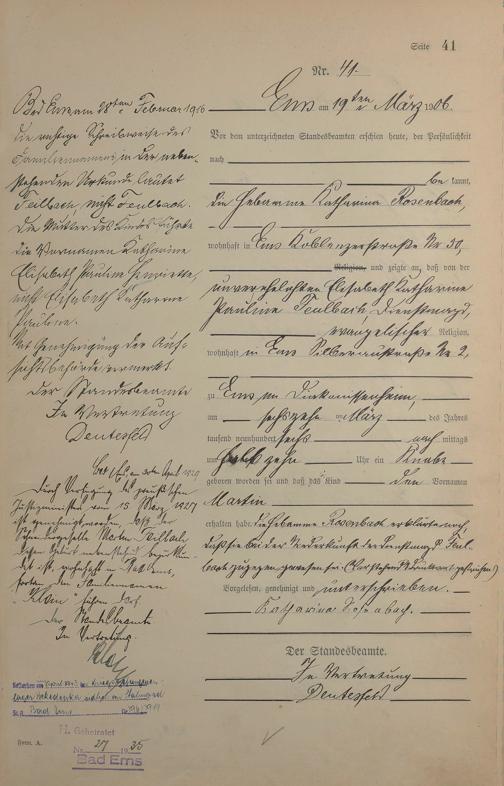 Seite 41
Nr. 41.
Ems am 19ten März 1906.
Vor dem unterzeichneten Standesbeamten erschien heute, der Persönlichkeit
nach
be kannt,
die Hebamme Katharina Rosenbach,
wohnhaft in Ems Koblenzerstraße Nr 30,
Religion, und zeigte an, daß von der
unverehelichten Elisabeth Katharine
Pauline Teulbach, Dienstmagd,
evangelischer Religion,
wohnhaft in Ems Silberaustraße Nr 2,
zu Ems im Diakonissenheim,
am sechszehn ten März des Jahres
tausend neunhundert sechs nach mittags
um halb zehn Uhr ein Knabe
geboren worden sei und daß das Kind den Vornamen
Martin
erhalten habe. Die Hebamme Rosenbach erklärte noch,
daß sie bei der Niederkunft der Dienstmagd Teul-
bach zugegen gewesen sei.
Vorgelesen, genehmigt und unterschrieben.
Katharina Rosenbach.
Der Standesbeamte.
In Vertretung
Deutesfeld
Bad Ems am 28ten Februar 19
Die richtige Schreibweise des
Familiennamens in der neben-
stehenden Urkunde lautet
Teilbach, nicht Teulbach.
Die Mutter des Kindes führte
die Vornamen Katharine
Elisabeth Pauline Henriette,
nicht Elisabeth Katharine
Pauline.
Mit Genehmigung der Auf-
sichtsbehörde vermerkt
Der Standesbeamte
In Vertretung
Deutesfeld
Bad Ems, am April 19
Durch Verfügung des preußischen
Justizministers vom 15 März 1927
ist genehmigt worden, daß der
Martin Teilbach,
dessen Geburt nebenstehend beurkun-
det ist, wohnhaft in Bad Ems,
fortan den Familiennamen
"Klein" führen darf.
der Standesbeamte
In Vertretung.
Bad Ems
Form. A.
H. Geheiratet
Nr. 27 1935
Bad Ems